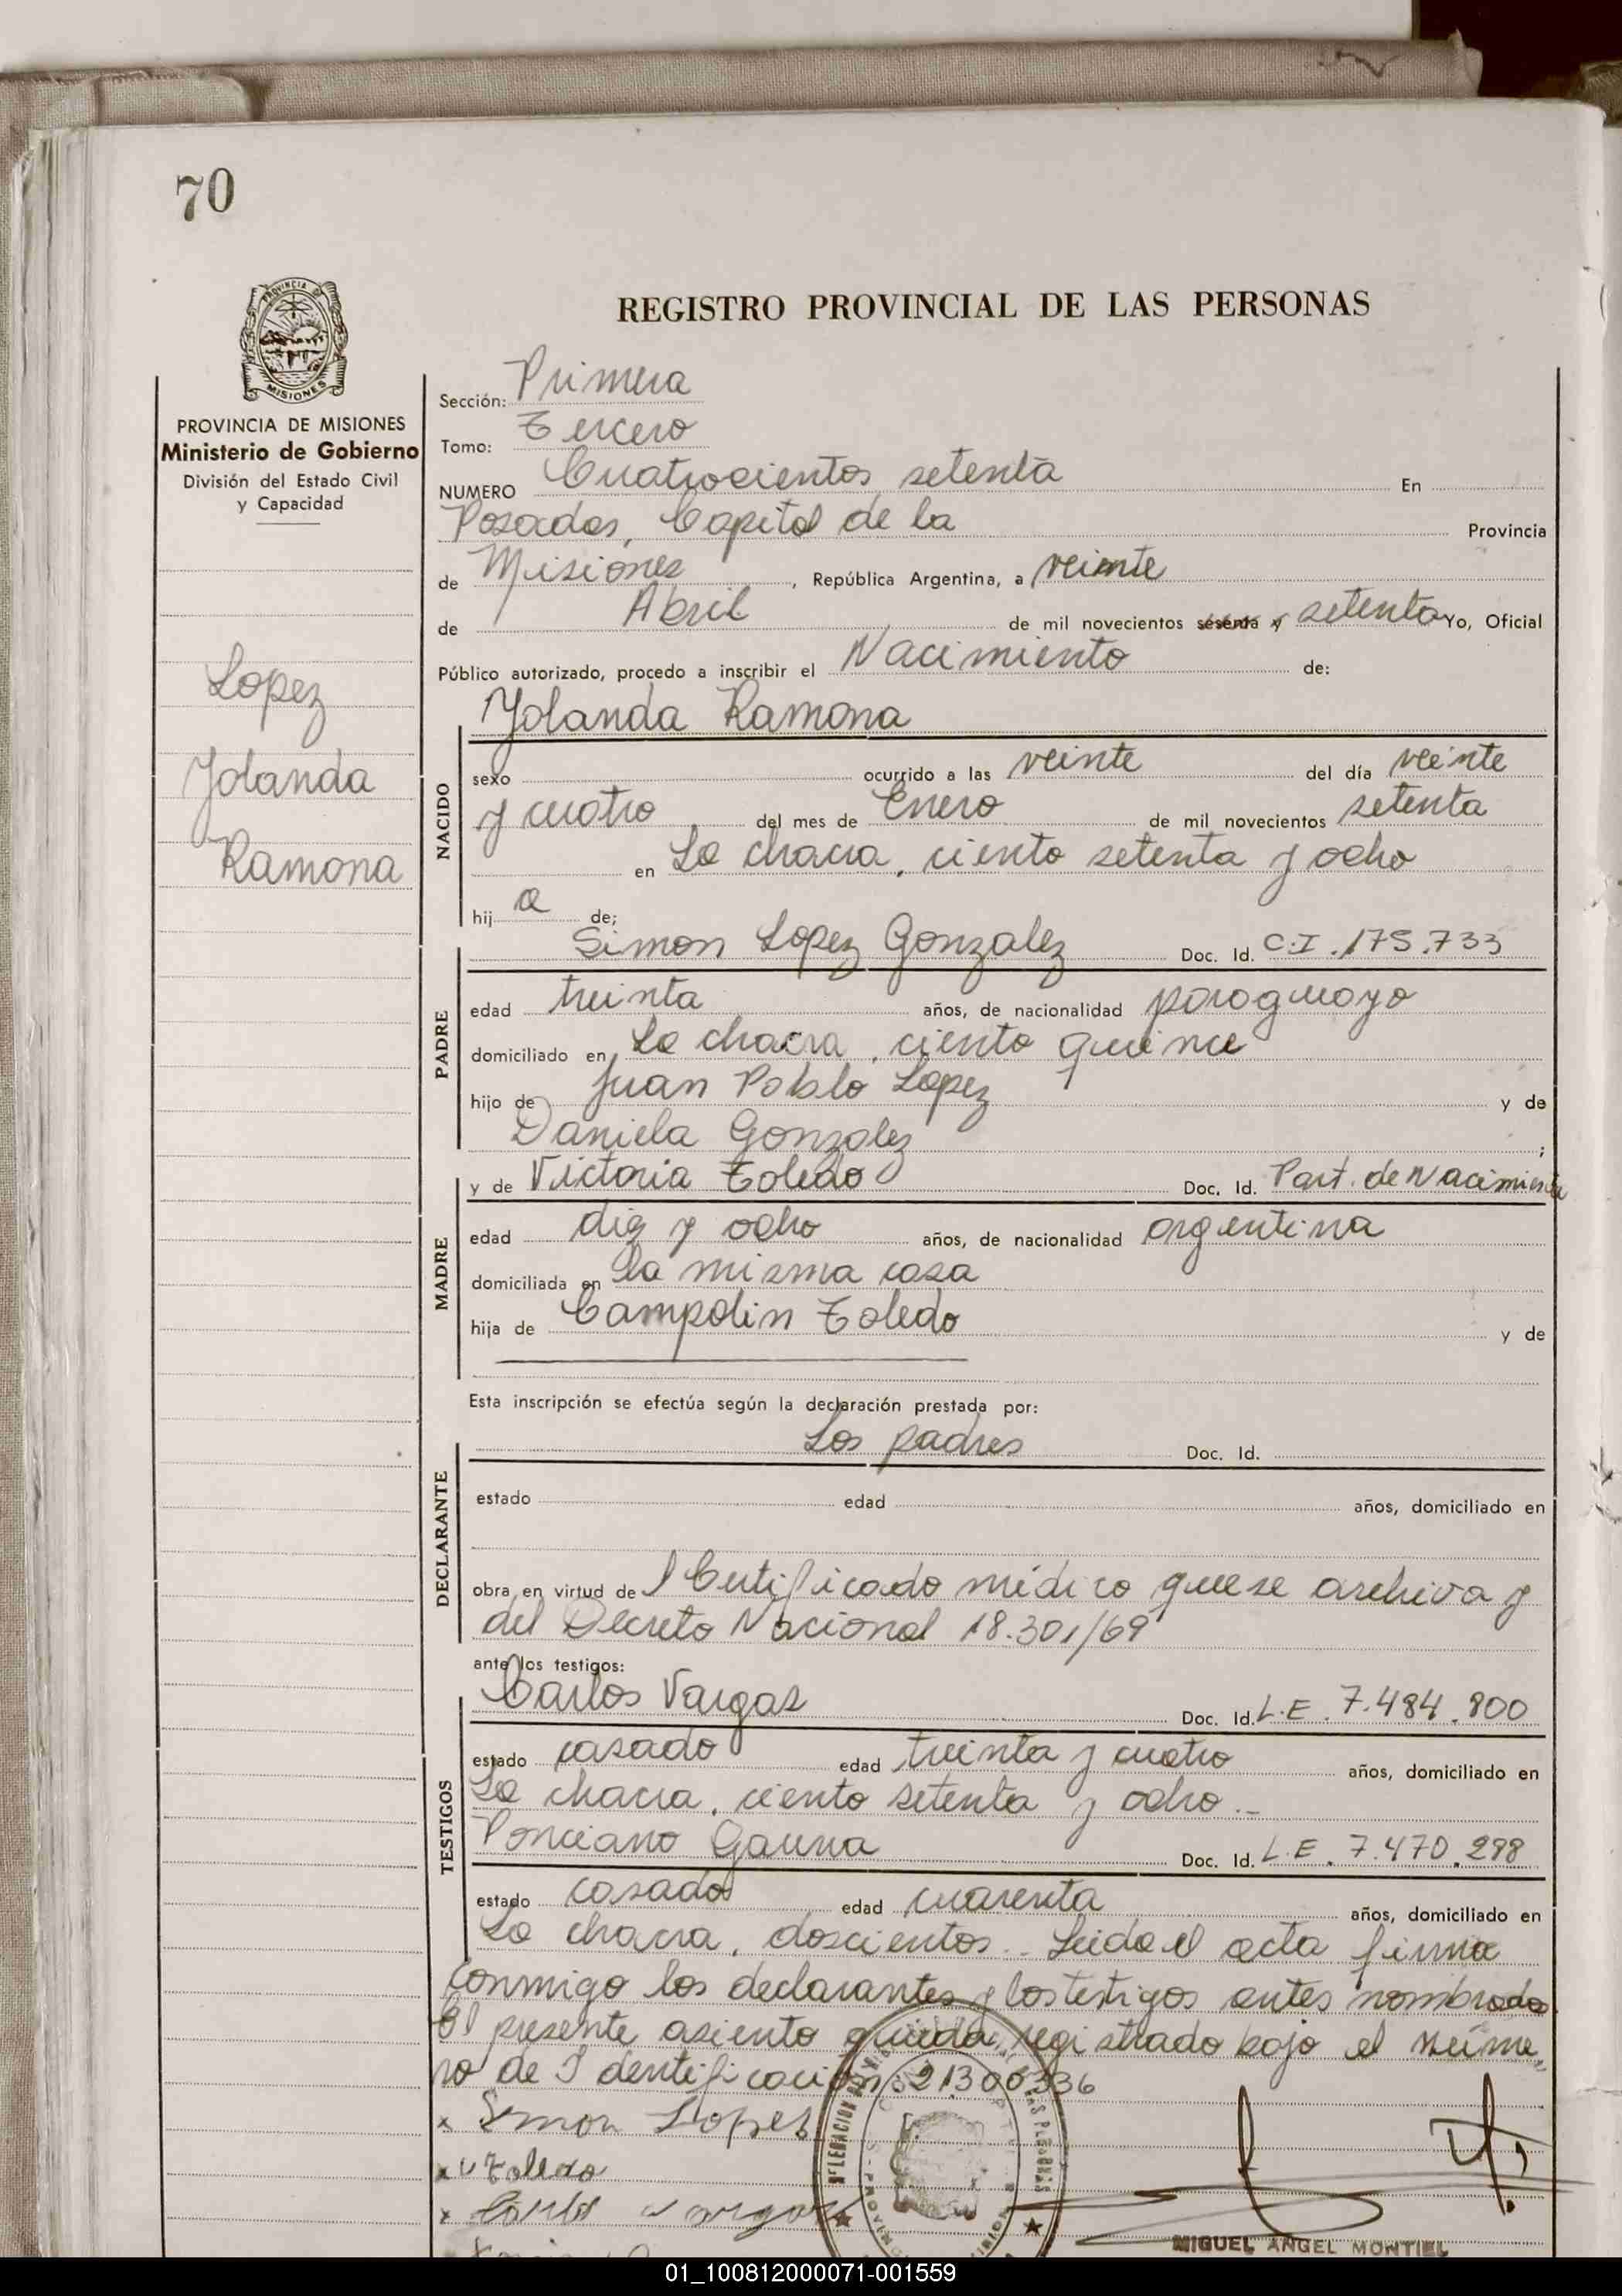 70
PROVINCIA DE
MISIONES
PROVINCIA DE MISIONES
Ministerio de Gobierno
División del Estado Civil
y Capacidad
Lopez
Yolanda
Ramona
REGISTRO PROVINCIAL DE LAS PERSONAS
Sección: Primera
Tomo: Tercero
NUMERO Cuatrocientos setenta En
Posadas, Capital de la Provincia
de Misiones, República Argentina, a veinte
de Abril de mil novecientos sesenta y setenta Yo, Oficial
Público autorizado, procedo a inscribir el Nacimiento de:
Yolanda Ramona
NACIDO
sexo ocurrido a las veinte del día veinte
y cuatro del mes de Enero de mil novecientos setenta
en La chacra, ciento setenta y ocho
hij a de;
Simon Lopez Gonzalez Doc. Id. C.I. 175.733
PADRE
edad treinta años, de nacionalidad paraguayo
domiciliado en La chacra, ciento quince
hijo de Juan Pablo Lopez y de
Daniela Gonzalez ;
y de Victoria Toledo Doc. Id. Part. de Nacimiento
MADRE
edad diez y ocho años, de nacionalidad argentina
domiciliada en la misma casa
hija de Campolin Toledo y de
Esta inscripción se efectúa según la declaración prestada por:
Los padres Doc. Id.
DECLARANTE
estado edad años, domiciliado en
obra en virtud de l Certificado médico que se archiva y
del Decreto Nacional 18.301/69
ante los testigos:
Carlos Vargas Doc. Id. L.E. 7.484.800
TESTIGOS
estado casado edad treinta y cuatro años, domiciliado en
La chacra, ciento setenta y ocho.-
Ponciano Gauna Doc. Id. L.E. 7.470.298
estado casado edad cuarenta años, domiciliado en
La chacra, doscientos.. Leida el acta firma
conmigo los declarantes y los testigos antes nombrados
El presente asiento queda registrado bajo el núme
ro de Identificación 21300336
x Simon Lopez
x V Toledo
x Carlos Vargas
MIGUEL ANGEL MONTIEL
01_100812000071-001559